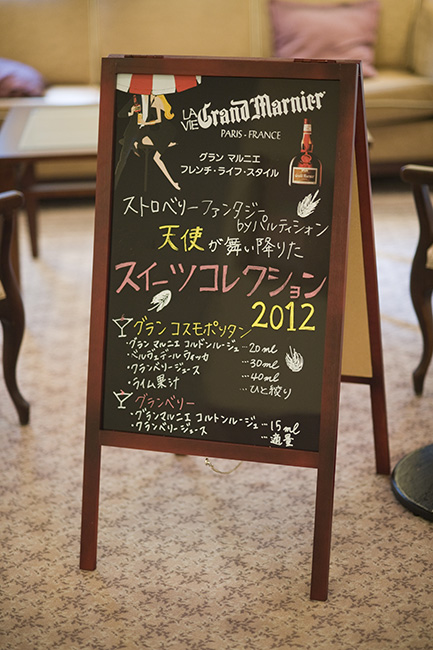 LA VIE Grand Marnier
PARIS - FRANCE
グラン マルニエ
フレンチ・ライフ・スタイル
ストロベリーファンタジー
byパルティシオン
天使が舞い降りた
スイーツコレクション
2012
グラン コスモポリタン
・グラン マルニエ コルドンルージュ…20ml
・ベルヴェデール ウォッカ …30ml
・クランベリージュース …40ml
・ライム果汁 …ひと絞り
グランベリー
・グランマルニエ コルドンルージュ…15ml
・クランベリージュース …適量